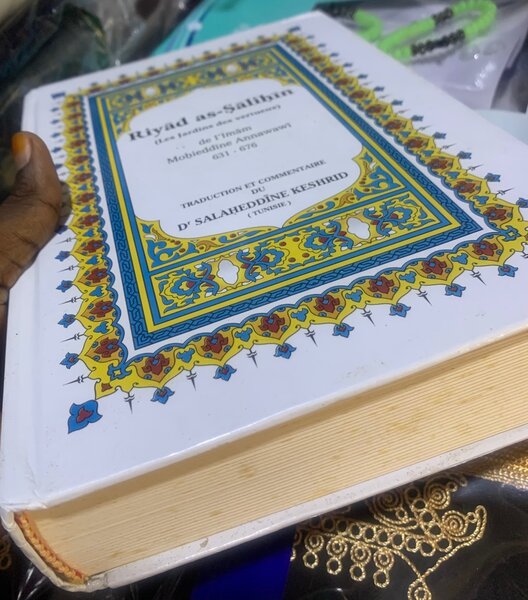 Riyâd as-Ṣâliḥîn
(Les Jardins des vertueux)
de l'Imâm
Mohieddîne Annawawî
631 - 676
TRADUCTION ET COMMENTAIRE
DU
Dʳ SALAHEDDÎNE KESHRID
( TUNISIE )